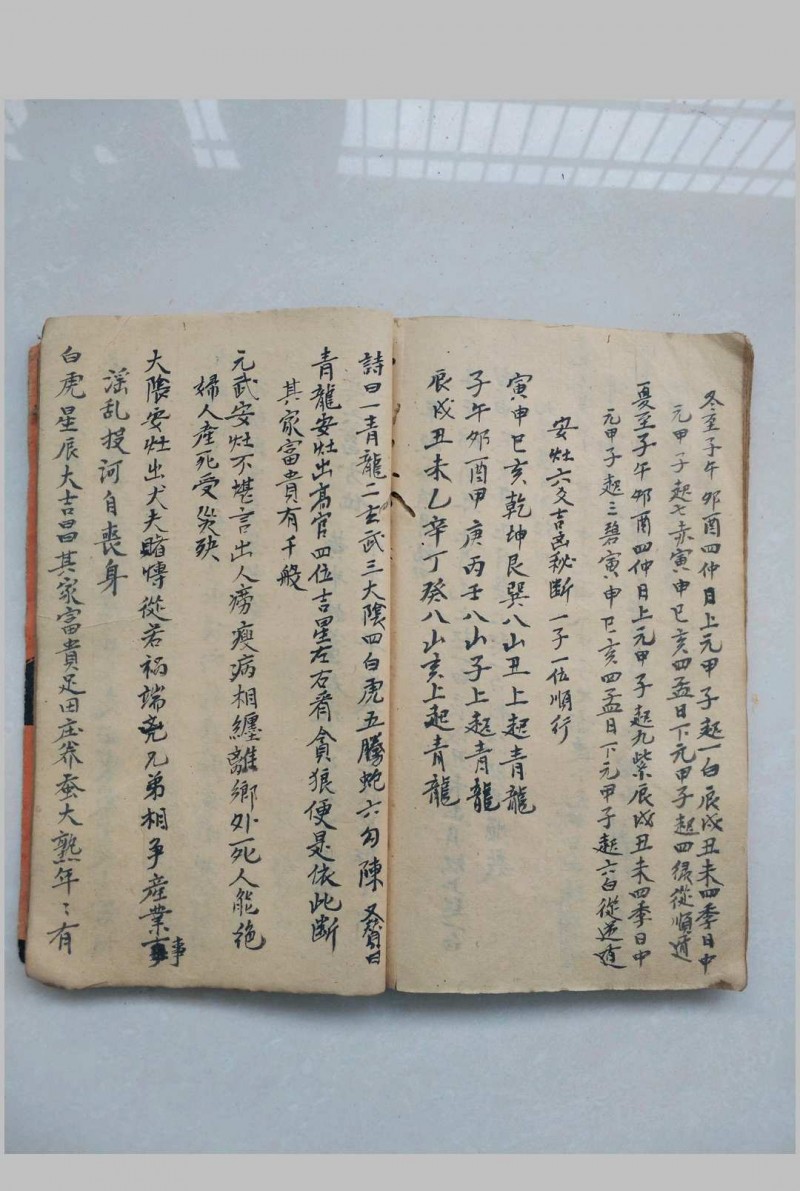 冬至子午卯酉四仲日上元甲子起一白辰戍丑未四季日中
元甲子起七赤寅申巳亥四孟日下元甲子起四绿從順遁
夏至子午卯酉四仲日上元甲子起九紫辰戍丑未四季日中
元甲子起三碧寅申巳亥四孟日下元甲子起六白從逆遁
安灶六爻吉凶秘断一子一位順行
寅申巳亥乾坤艮巽八山丑上起青龍
子午卯酉甲庚丙壬八山子上起青龍
辰戍丑未乙辛丁癸八山亥上起青龍
詩曰一青龍二玄武三大陰四白虎五騰蛇六勾陳又賛曰
青龍安灶出高官四位吉星左右看貪狼便是依此断
其家富貴有千般
元武安灶不堪言出人癆瘦病相纏離鄉外死人能絶
婦人產死受災殃
大陰安灶出犬夫賭愽從若禍端兄弟相爭産業事
滛乱投河自喪身
白虎星辰大吉昌其家富貴足田庄养蚕大熟年〻有